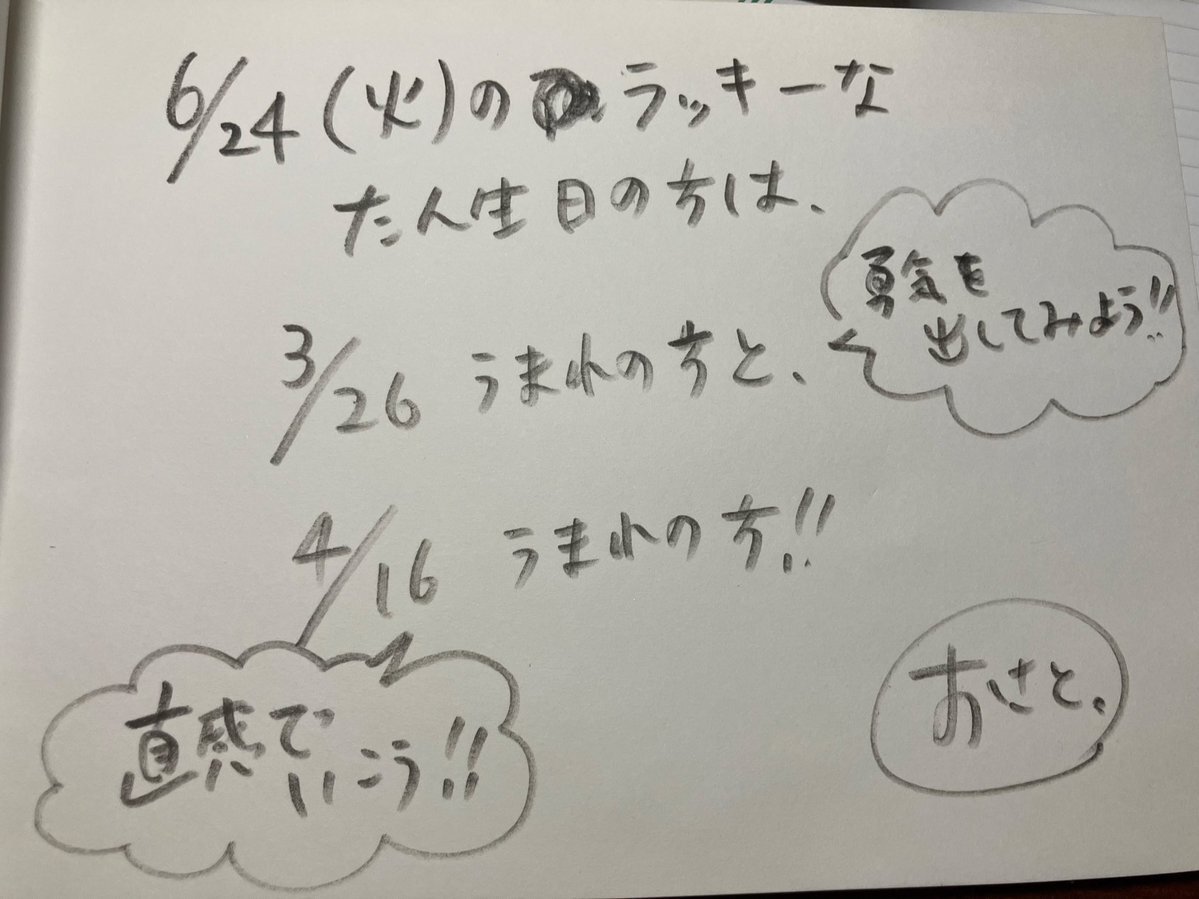 6/24(火)のラッキーな
たん生日の方は、
3/26 うまれの方と、
勇気を
出してみよう!!
4/16 うまれの方!!
直感で
いこう!!
おさと、